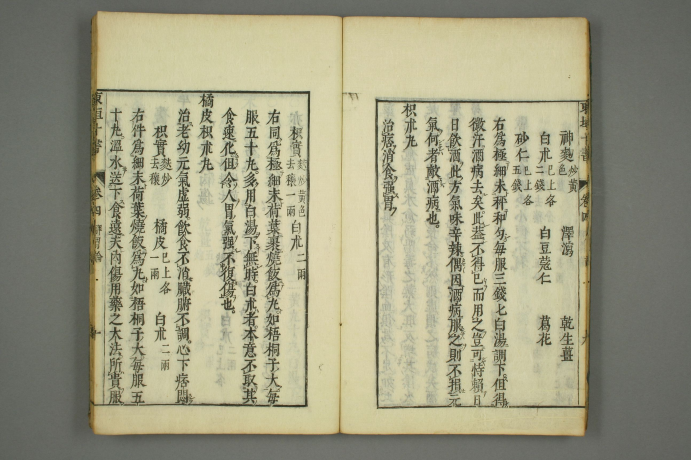 神麴炒黃色 澤瀉 乾生薑
白朮二錢已上各 白豆蔻仁 葛花
砂仁已上各五錢
右爲極細末秤和勻每服三錢匕白湯調下但得
微汗酒病去矣此葢不得已而用之豈可恃賴日
日飲酒此方氣味辛辣偶因酒病服之則不損元
氣何者敵酒病也
枳朮丸
治痞消食強胃
枳實麩炒黃色去穰一兩 白朮二兩
右同爲極細末荷葉裹燒飯爲丸如梧桐子大每
服五十丸多用白湯下無時白朮者本意不取其
食速化但令人胃氣强不復傷也
橘皮枳朮丸
治老幼元氣虛弱飮食不消臟腑不調心下痞悶
枳實麩炒去穰 橘皮已上各一兩 白朮二兩
右件爲細末荷葉燒飯爲丸如梧桐子大每服五
十丸溫水送下食遠夫內傷用藥之大法所貴服
東垣十書 卷四